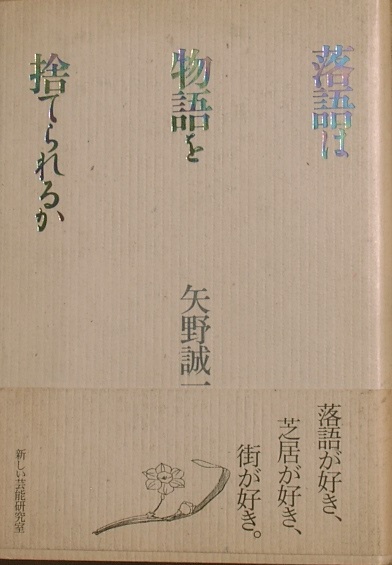 落語は
物語を
捨てられるか
矢野誠一
落語が好き、
芝居が好き、
街が好き。
新しい芸能研究室